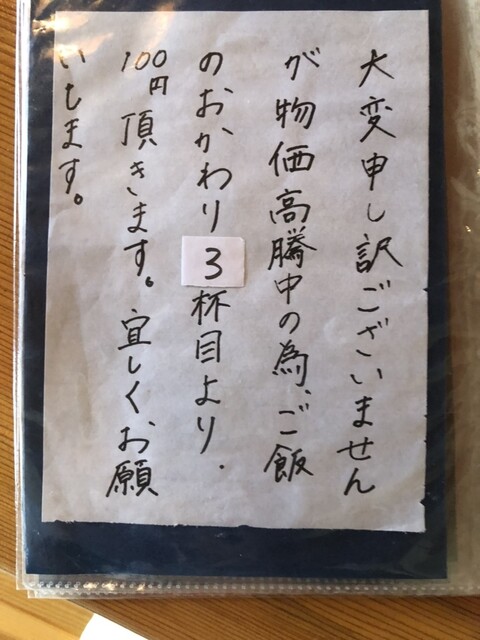 大変申し訳ございません
が物価高騰中の為、ご飯
のおかわり3杯目より.
100円頂きます。宜しくお願
いします。